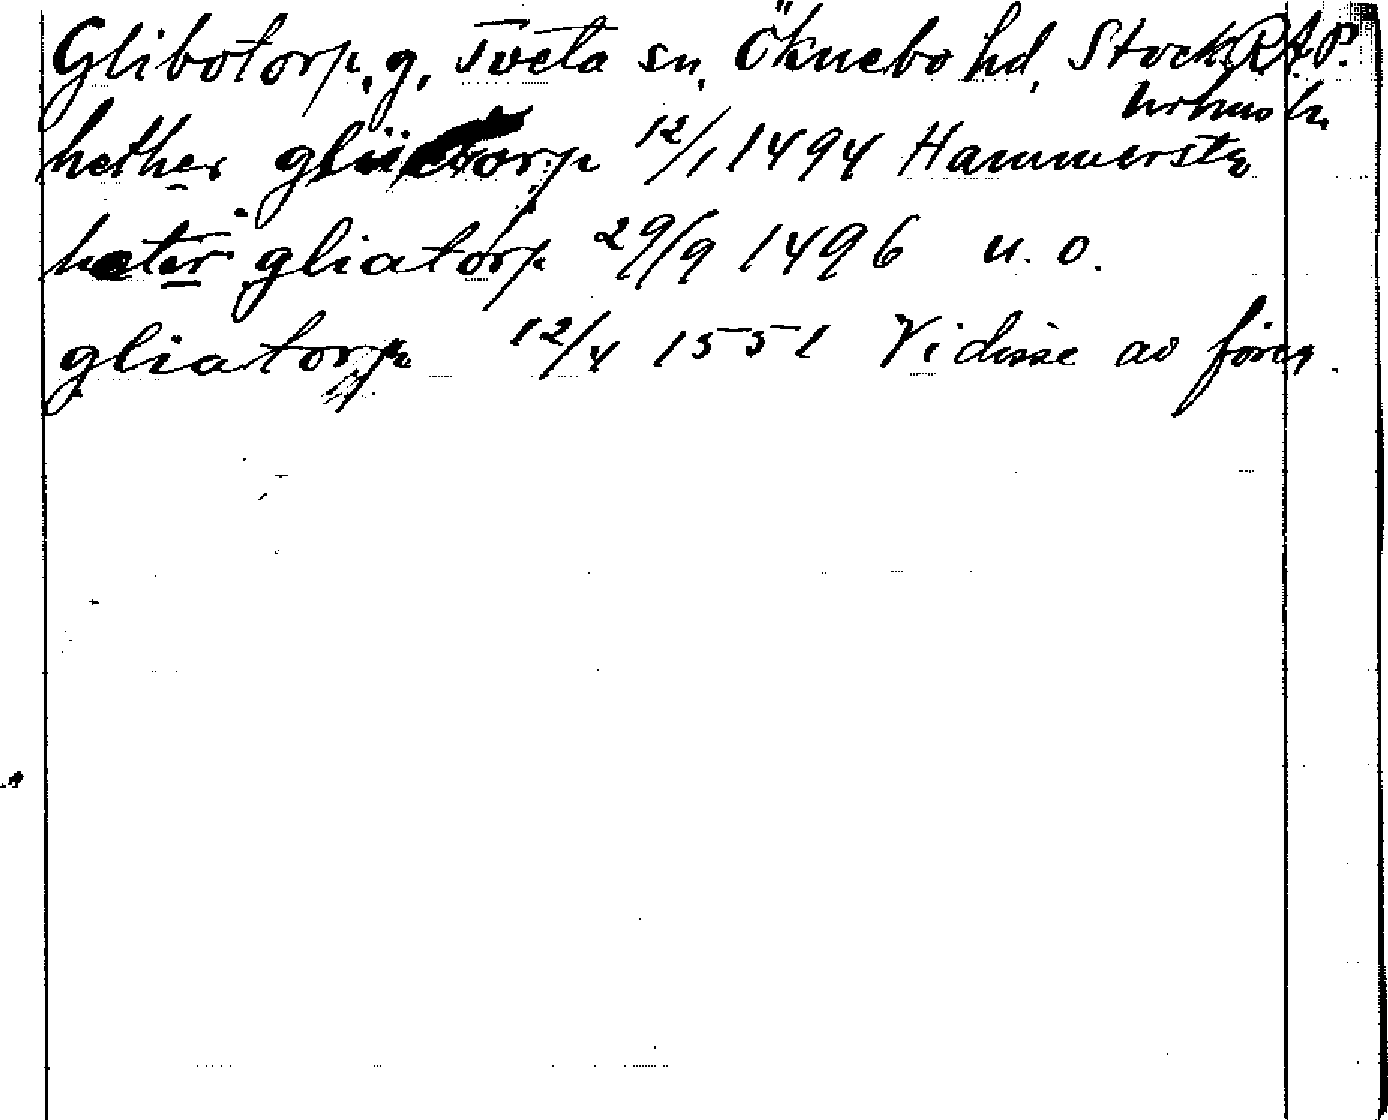 Glibotorp, g, Tveta sn, Öknebo hd, Stock RAP.
hether 12/1 1494 Hammersta
heter gliatorp 29/9 1496 u. o.
gliatorp 12/4 1551 Vidisse av föreg.